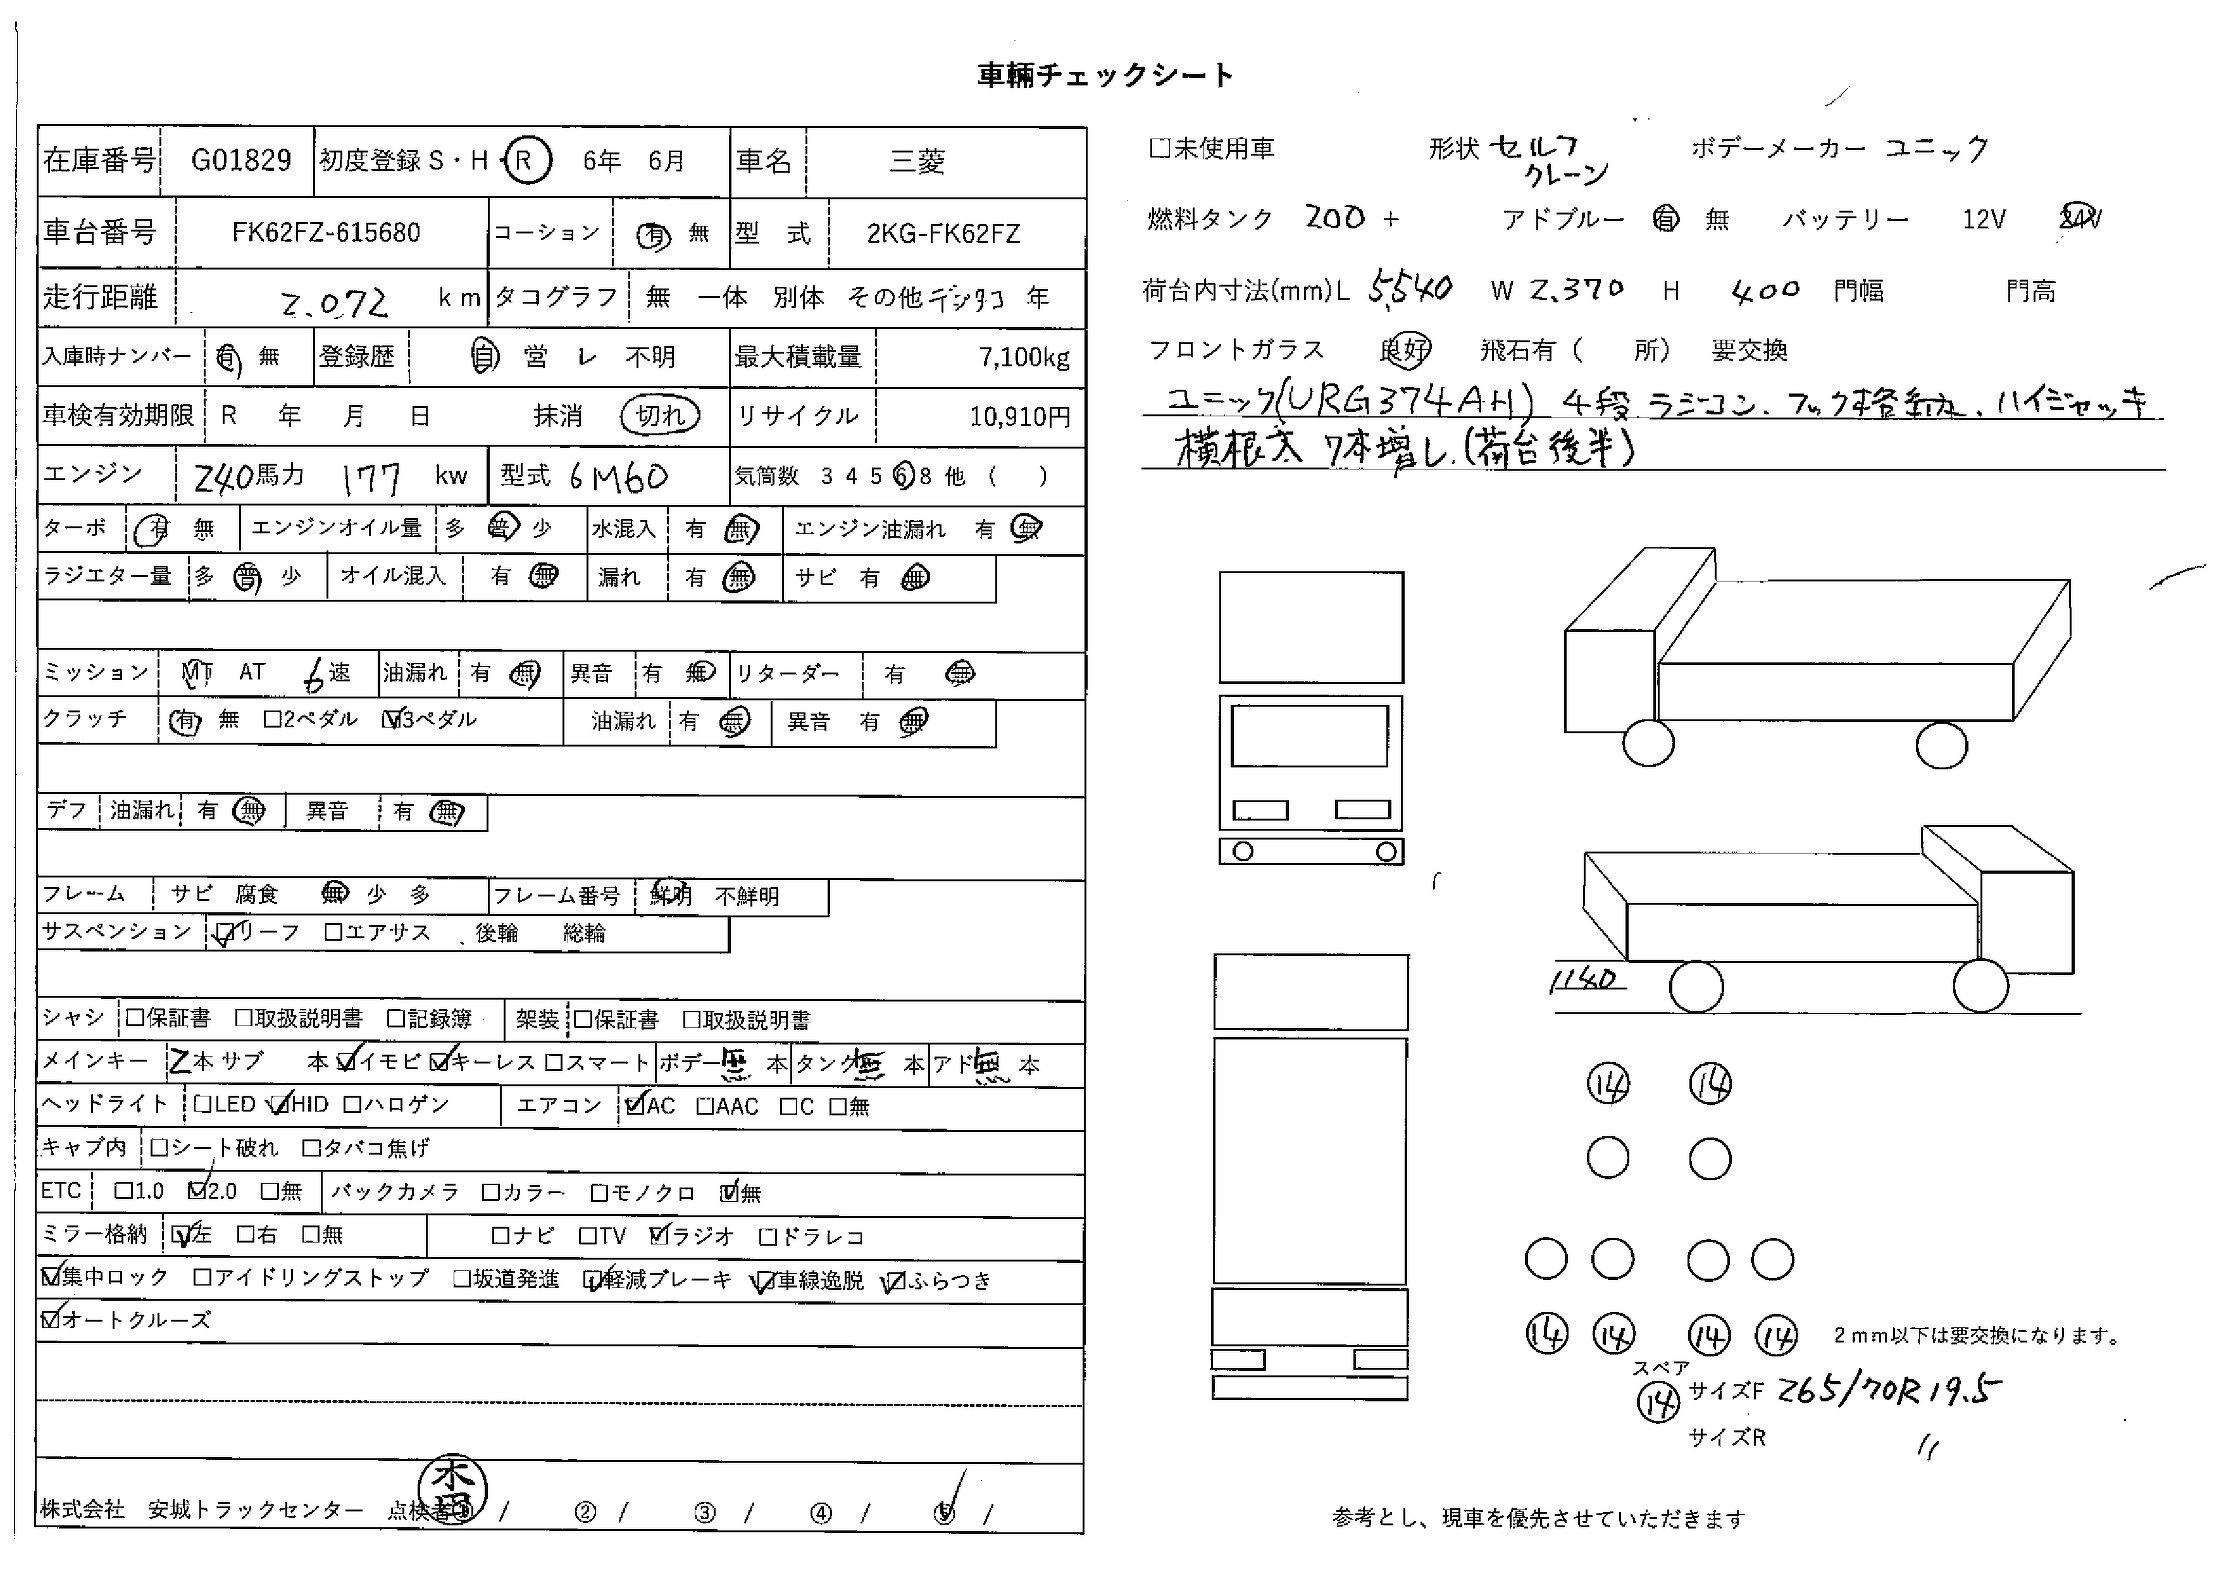 車輌チェックシート
在庫番号 G01829 初度登録 S・H・R 6年 6月 車名 三菱
車台番号 FK62FZ-615680 コーション 有 無 型 式 2KG-FK62FZ
走行距離 2.072 km タコグラフ 無 一体 別体 その他 デジタコ 年
入庫時ナンバー 有 無 登録歴 自 営 レ 不明 最大積載量 7,100kg
車検有効期限 R 年 月 日 抹消 切れ リサイクル 10,910円
エンジン 240馬力 177 kw 型式 6M60 気筒数 3 4 5 6 8 他 ( )
ターボ 有 無 エンジンオイル量 多 普 少 水混入 有 無 エンジン油漏れ 有 無
ラジエター量 多 普 少 オイル混入 有 無 漏れ 有 無 サビ 有 無
ミッション MT AT 6速 油漏れ 有 無 異音 有 無 リターダー 有 無
クラッチ 有 無 □2ペダル ☑3ペダル 油漏れ 有 無 異音 有 無
デフ 油漏れ 有 無 異音 有 無
フレーム サビ 腐食 無 少 多 フレーム番号 鮮明 不鮮明
サスペンション ☑リーフ □エアサス 後輪 総輪
シャシ □保証書 □取扱説明書 □記録簿 架装 □保証書 □取扱説明書
メインキー 2本 サブ 本 ☑イモビ ☑キーレス □スマート ボデー無 本 タンク無 本 アド無 本
ヘッドライト □LED ☑HID □ハロゲン エアコン ☑AC □AAC □C □無
キャブ内 □シート破れ □タバコ焦げ
ETC □1.0 ☑2.0 □無 バックカメラ □カラー □モノクロ ☑無
ミラー格納 ☑左 □右 □無 □ナビ □TV ☑ラジオ □ドラレコ
☑集中ロック □アイドリングストップ □坂道発進 ☑軽減ブレーキ ☑車線逸脱 ☑ふらつき
☑オートクルーズ
株式会社 安城トラックセンター 点検者① / ② / ③ / ④ / ⑤ /
□未使用車 形状 セルフ クレーン ボデーメーカー ユニック
燃料タンク 200 + アドブルー 有 無 バッテリー 12V 24V
荷台内寸法(mm)L 5,540 W 2,370 H 400 門幅 門高
フロントガラス 良好 飛石有 ( 所) 要交換
ユニック(URG374AH) 4段 ラジコン、フック格納、ハイジャッキ
横根太 7本増し(荷台後半)
1140
14 14
14 14 14 14 2mm以下は要交換になります。
スペア
14 サイズF 265/70R19.5
サイズR 〃
参考とし、現車を優先させていただきます